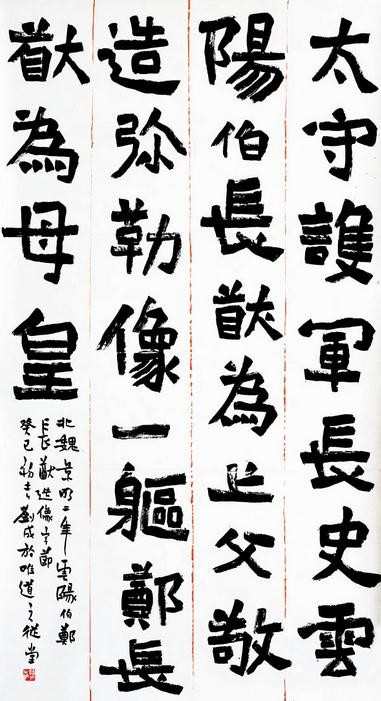 太守護軍長史雲
陽伯長猷為亡父敬
造弥勒像一軀鄭長
猷為母皇
北魏景明二年雲陽伯鄭
長猷造像節
癸巳劉成於唯道從堂